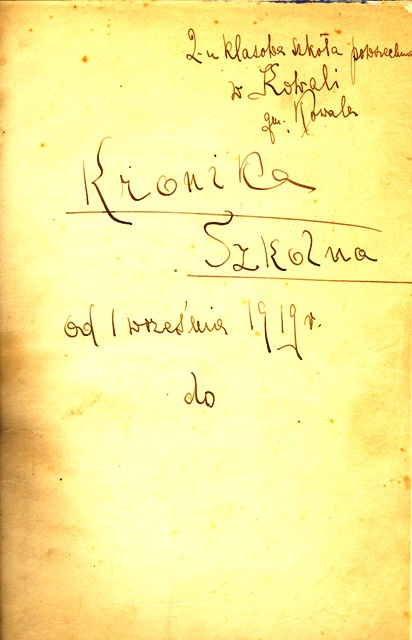 2-u klasowa szkoła powszechna
w Kowali
gm. Kowala
Kronika
Szkolna
od 1 września 1919 r.
do